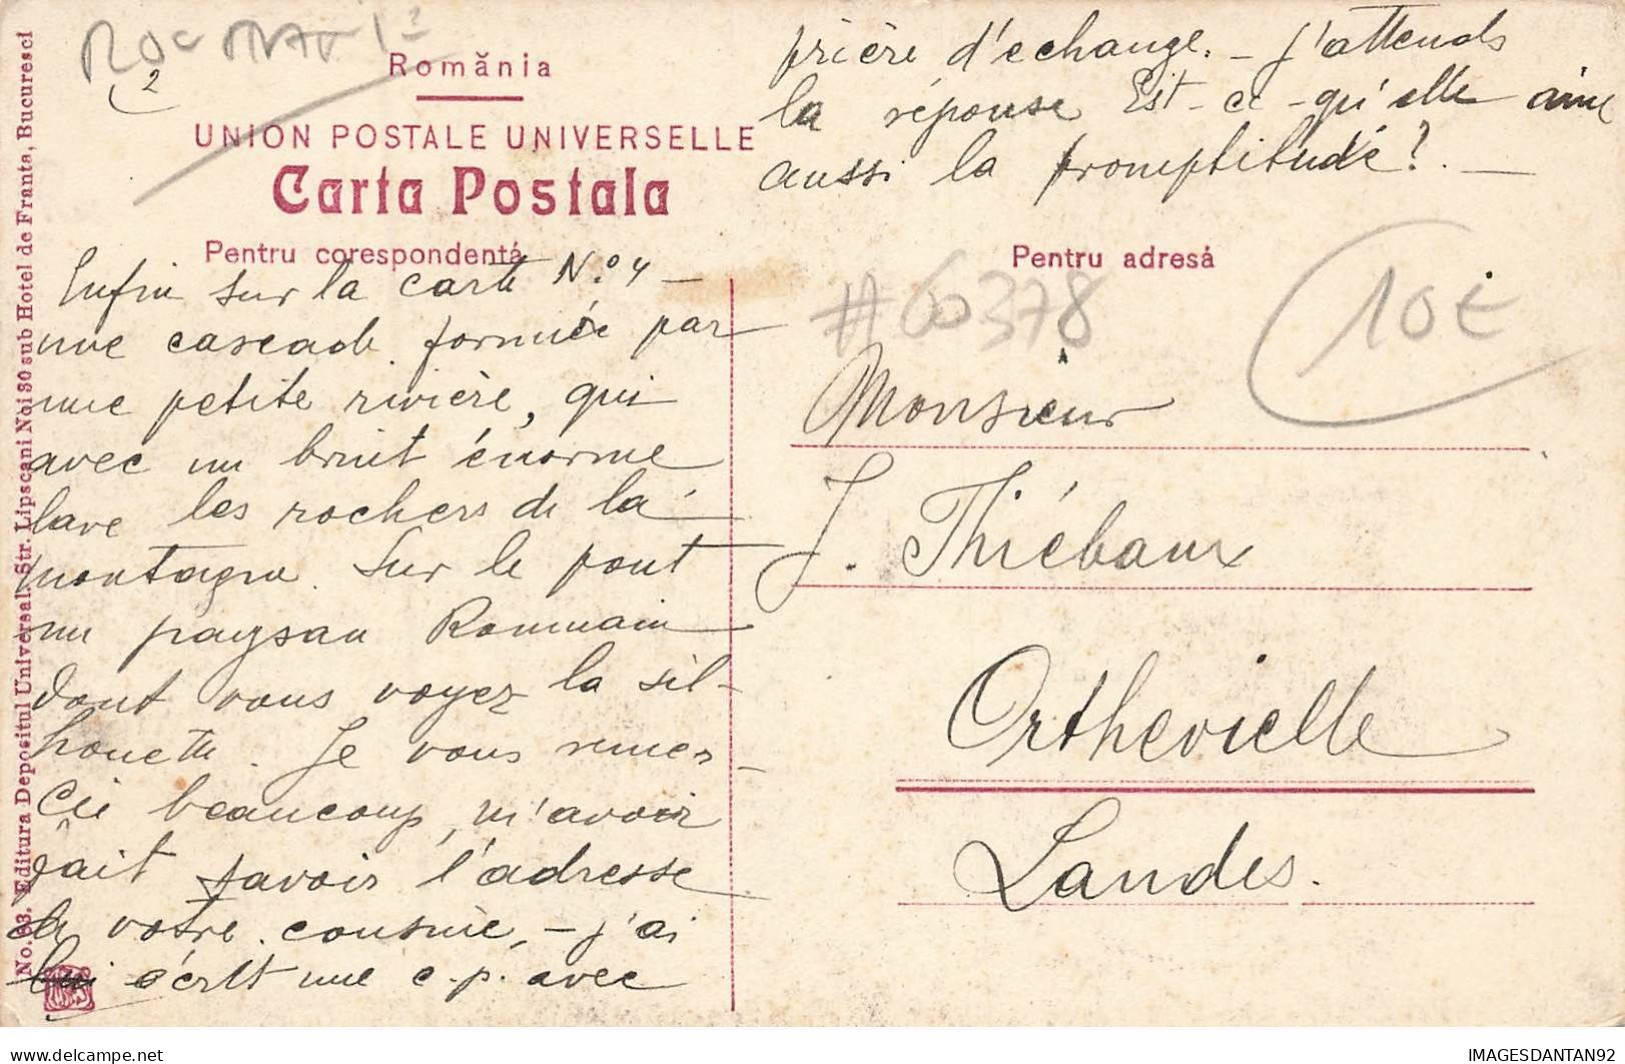 România
UNION POSTALE UNIVERSELLE
Carta Postala
Pentru corespondentá
Pentru adresá
No. 83. Editura Depositul Universal, Str. Lipscani Noi 30 sub Hotel de Franta, Bucuresci
2
#60378
10€
Enfin sur la carte N.º 4 –
une cascade formée par
une petite rivière, qui
avec un bruit énorme
lave les rochers de la
montagne. Sur le pont
un paysan Roumain
dont vous voyez la sil-
houette. Je vous remer-
cie beaucoup, m'avoir
fait savoir l'adresse
de votre cousine, – j'ai
lui écrit une c.p. avec
prière d'echange. – J'attends
la réponse Est-ce-qu'elle aime
aussi la promptitude? –
Monsieur
J. Thiébaux
Orthevielle
Landes.
IMAGESDANTAN92
delcampe.net